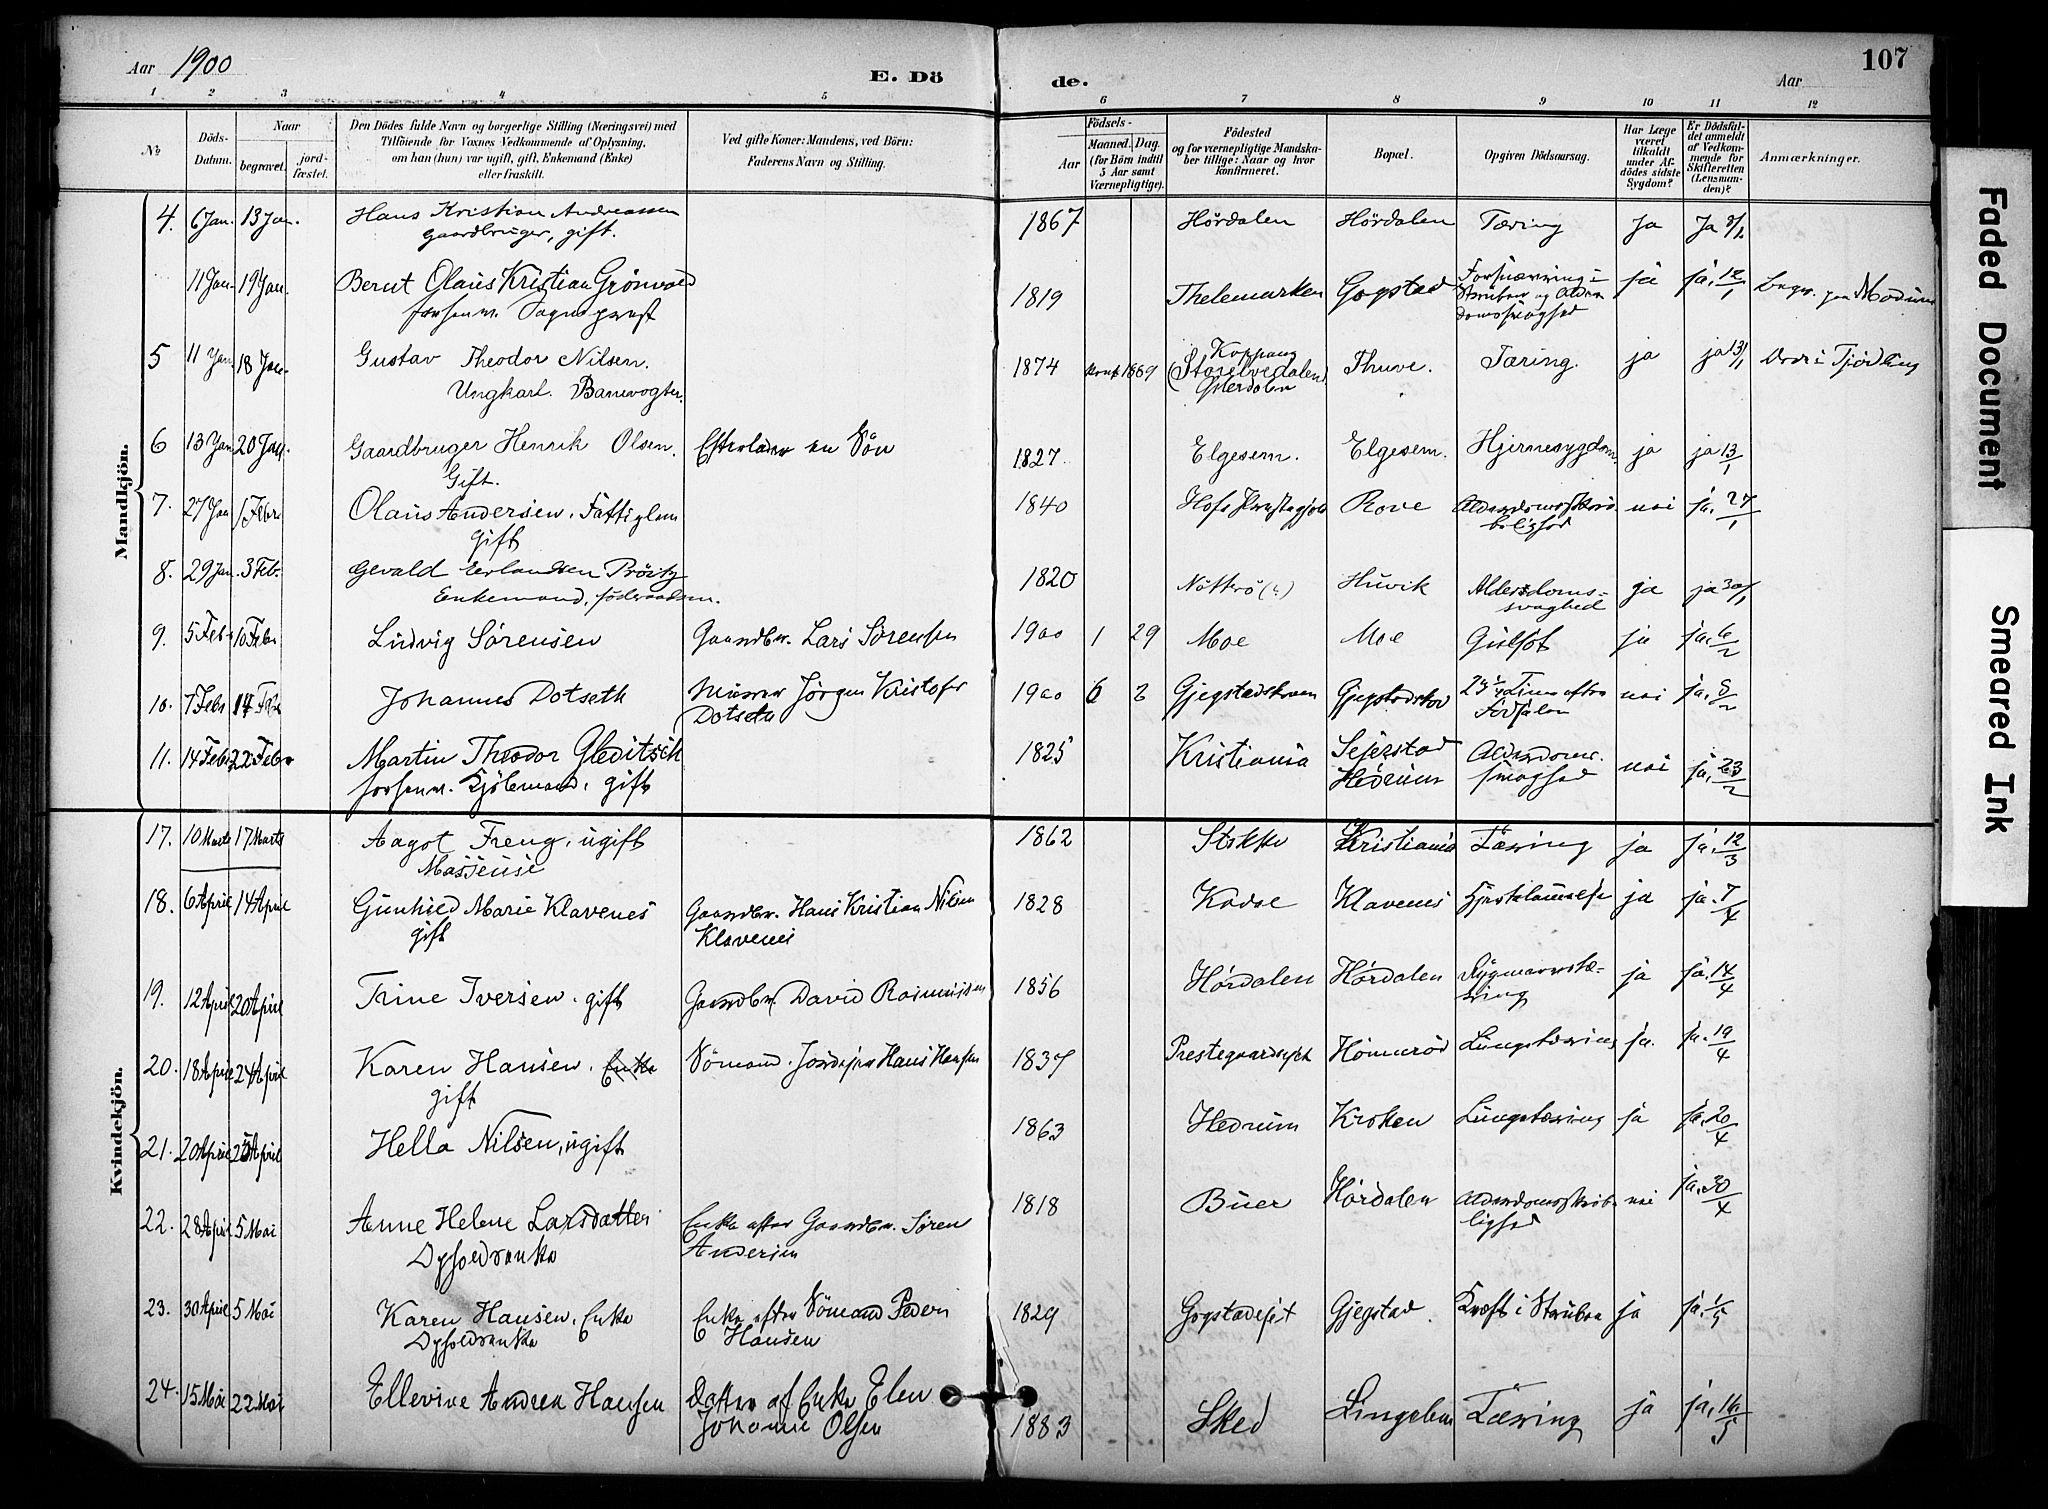 Aar 1900
E. Döde.
Aar
107
1 2 3 4 5 6 7 8 9 10 11 12
№
Döds-Datum.
Naar
begravet.
jord-fæstet.
Den Dödes fulde Navn og borgerlige Stilling (Næringsvei) med
Tilföiende for Voxnes Vedkommende af Oplysning,
om han (hun) var ugift, gift, Enkemand (Enke)
eller fraskilt.
Ved gifte Koner: Mandens, ved Börn:
Faderens Navn og Stilling.
Födsels-
Aar
Maaned. Dag.
(for Börn indtil
5 Aar samt
Værnepligtige).
Födested
og for værnepligtige Mandska-
ber tillige: Naar og hvor
konfirmeret.
Bopæl.
Opgiven Dödsaarsag.
Har Læge
været
tilkaldt
under Af-
dödes sidste
Sygdom?
Er Dödsfal-
det anmeldt
af Vedkom-
mende for
Skifteretten
(Lensman-
den)?
Anmærkninger.
Mandkjön.
4. 6 Jan. 13 Jan. Hans Kristian Andreassen 1867 Hördalen Hördalen Tæring Ja Ja
Gaardbruger, gift.
11 Jan. 19 Jan. Bernt Olaus Kristian Grönvold 1819 Thelemarken Gogstad Forsnævring i Struben og Alderdomssvaghed ja ja. 12/1 Begr. paa Modum
forhenv. Sogneprest
5 11 Jan. 18 Jan. Gustav Theodor Nilsen. 1874 1889 Koppang (Storelvedalen) Østerdalen Thuve. Tæring. ja ja 13/1
Ungkarl. Banevogter.
6 13 Jan 20 Jan. Gaardbruger Henrik Olsen. Efterlader en Sön 1827 Elgesem. Elgesem. Hjernesygdom. ja ja 13/1
Gift.
7. 27 Jan 1 Febr Olaus Andersen. Fattiglem 1840 Rove nei ja. 27/1
gift
8. 29 Jan. 3 Feb. Gevald Erlandsen Pröitz 1820 Nötterö Huvik Alderdoms-svaghed ja ja 30/1
Enkemand, föderaadsm.
9. 5 Febr 10 Febr Ludvig Sörensen Gaardbr. Lars Sörensen 1900 1 29 Moe Moe Gulsot ja ja. 6/2
10. 7 Febr 14 Febr Johannes Dotseth Murer Jörgen Kristofer Dotseth 1900 6 2 Gjegstadskoven Gjegstadskov 23 1/4 Timer efter Födselen nei ja. 8/2
11. 14 Febr 22 Febr Martin Theodor Gleditsch 1825 Kristiania Sejerstad Hedrum Alderdoms-svaghed nei ja. 23/2
forhenv. Kjöbmand, gift
Kvindekjön.
17. 10 Marts 17 Marts Aagot Freng, ugift 1862 Stokke Kristiania Tæring ja ja. 12/3
Masseuse
18. 6 April 14 April Gunhild Marie Klavenes Gaardbr. Hans Kristian Nilsen Klavenes 1828 Kodal Klavenes Hjertelammelse ja ja. 7/4
gift
19. 12 April 20 April Trine Iversen. gift Gaardbr. David Rasmussen 1856 Hördalen Hördalen Rygmarvstæ-ring ja ja. 14/4
20. 18 April 24 April Karen Hansen. Enke Sömand. Hans Hansen 1837 Hömeröd Lungetæring ja. ja. 19/4
gift
21. 20 April 25 April Hella Nilsen, ugift 1863 Hedrum Kroken Lungetæring ja ja. 20/4
22. 28 April 5 Mai Anne Helene Larsdatter Enke efter Gaardbr. Sören Andersen 1818 Buer Hördalen Alderdomsskröbe-lighed nei ja. 30/4
Opholdsenke
23. 30 April 5 Mai Karen Hansen. Enke Enke efter Sömand Peder Hansen 1829 Gogstadejet Gjegstad Kræft i Struben ja ja. 1/5
Opholdsenke
24. 15 Mai 22 Mai Ellevine Andrea Hansen Datter af Enke Elen Johanne Olsen 1883 Sked Lingelem Tæring ja ja. 16/5
Faded Document
Smeared Ink